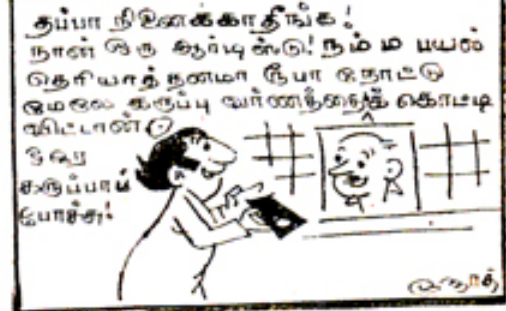 தப்பா நினைக்காதீங்க!
நான் ஒரு ஆர்டிஸ்டு! நம்ம பயல்
தெரியாத்தனமா ரூபா நோட்டு
மேலே கருப்பு வர்ணத்தைக் கொட்டி
விட்டான்
ஒரே
கருப்பாப்
போச்சு!